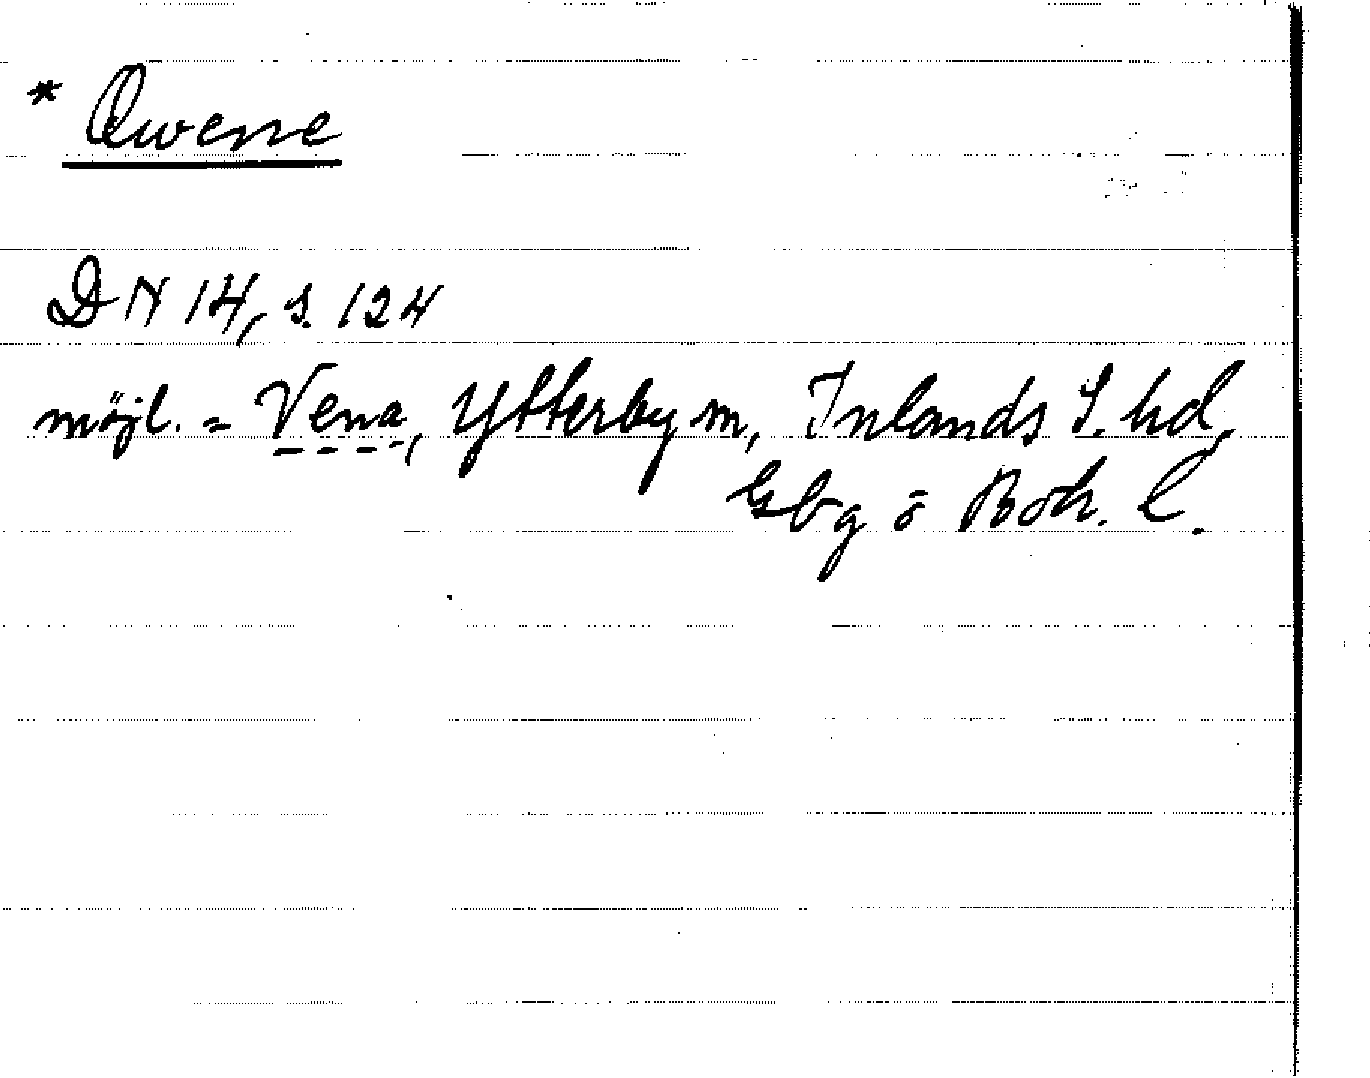 * Qwene
DN 14, s. 124
möjl. = Vena, Ytterby sn, Inlands S. hd,
Gbg o Boh. l.